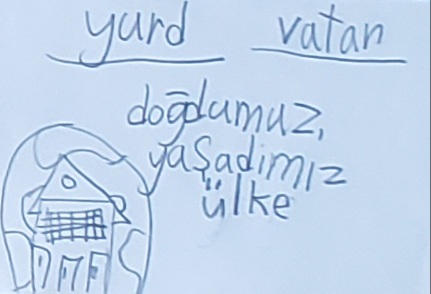 yurd vatan
doğdumuz,
yaşadimız
ülke